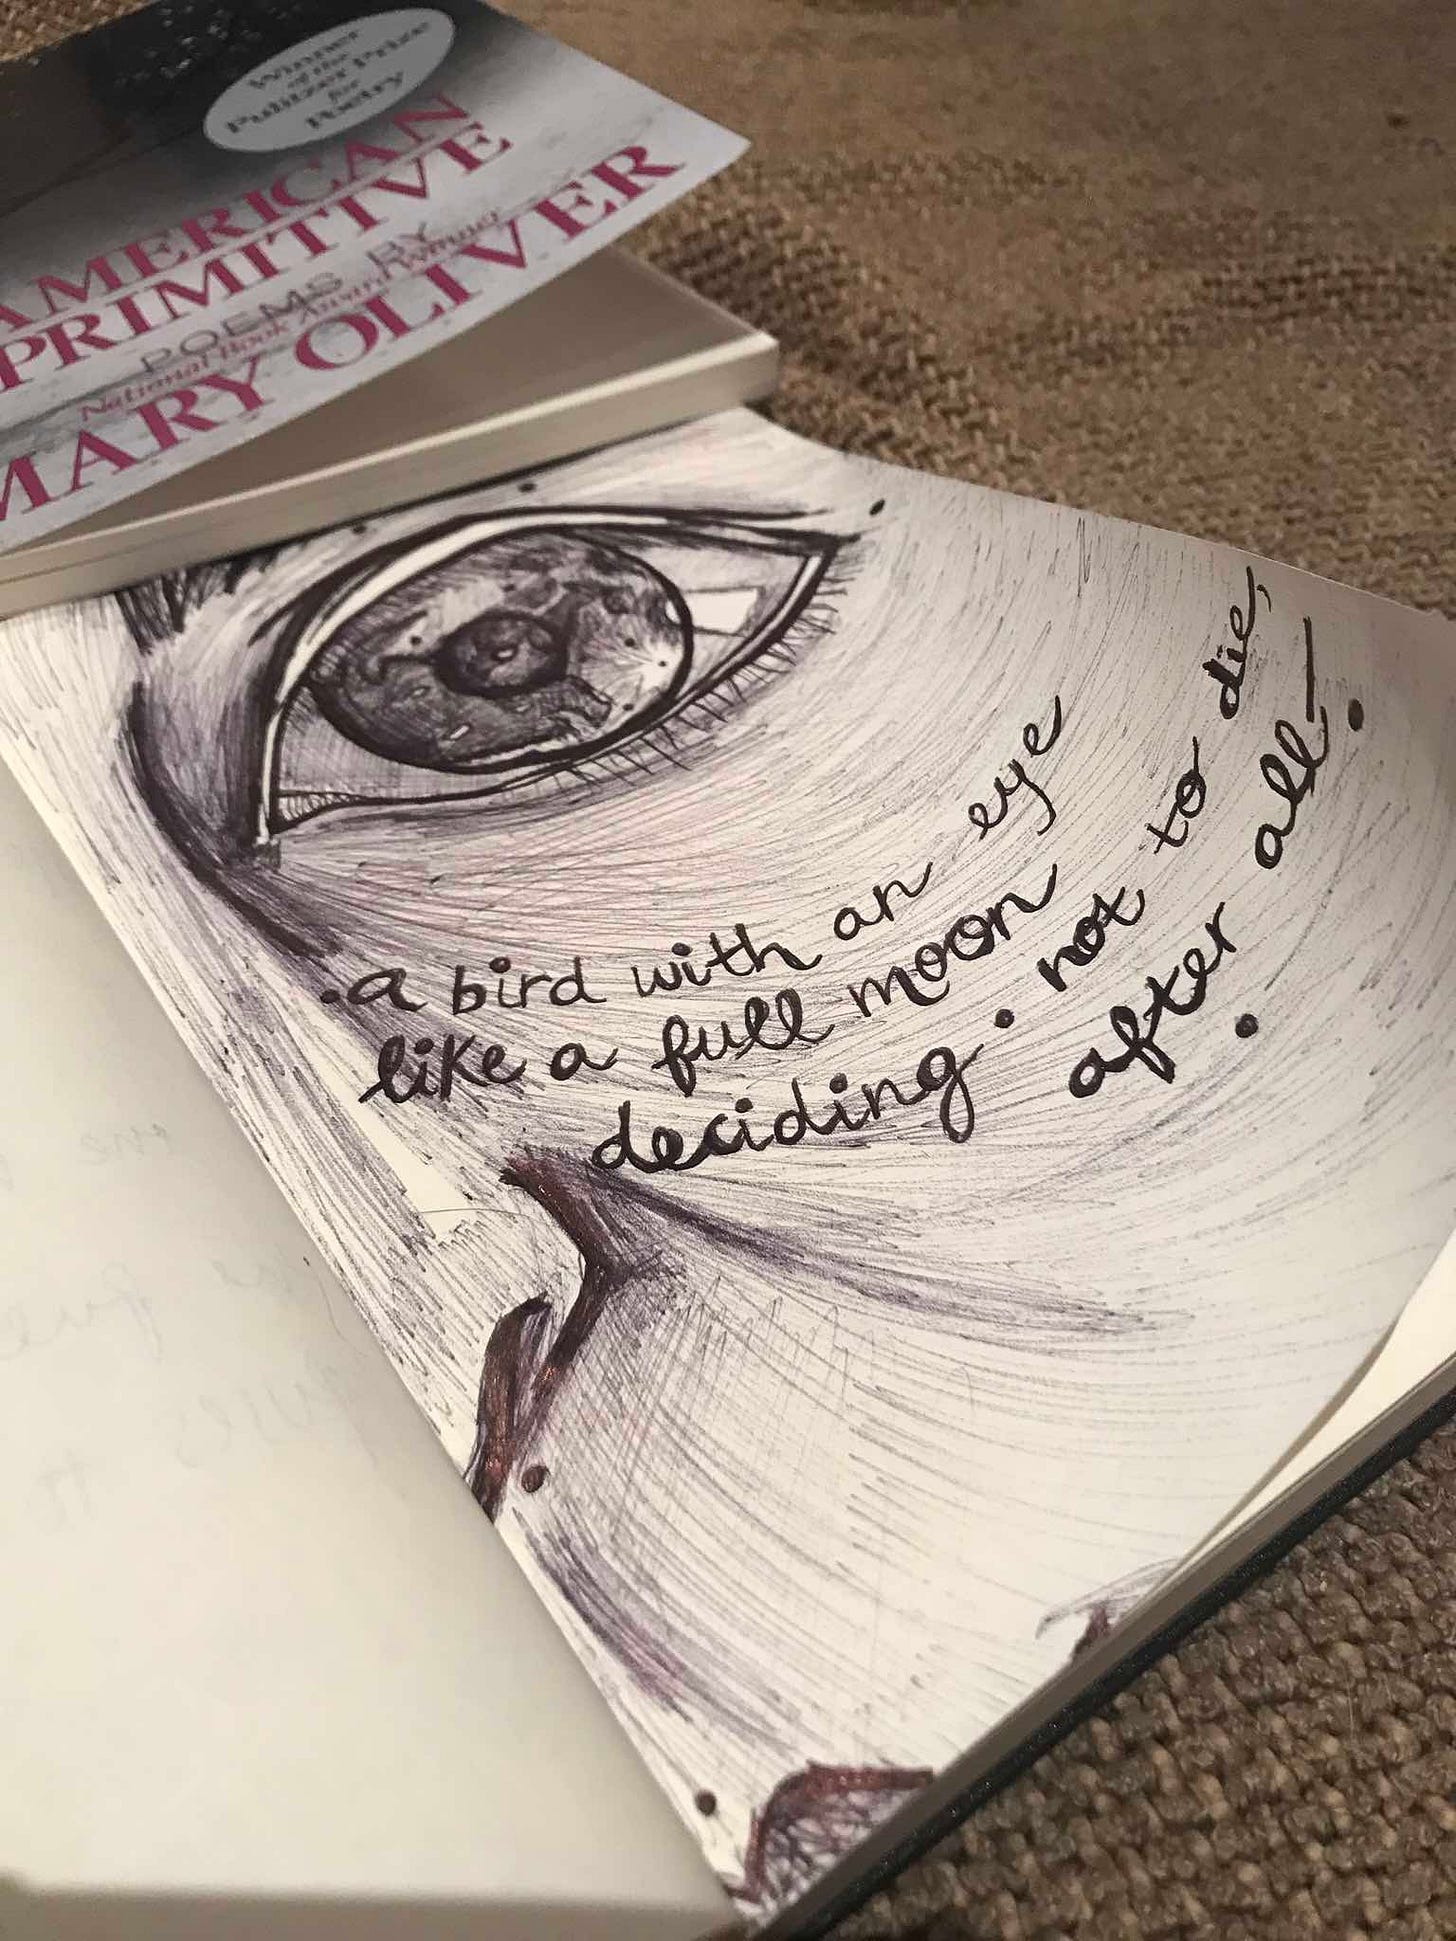 Winner
of the
Pulitzer Prize
for
Poetry
AMERICAN
PRIMITIVE
POEMS BY
National Book Award Winner
MARY OLIVER
a bird with an eye
like a full moon
deciding not to die,
after all—